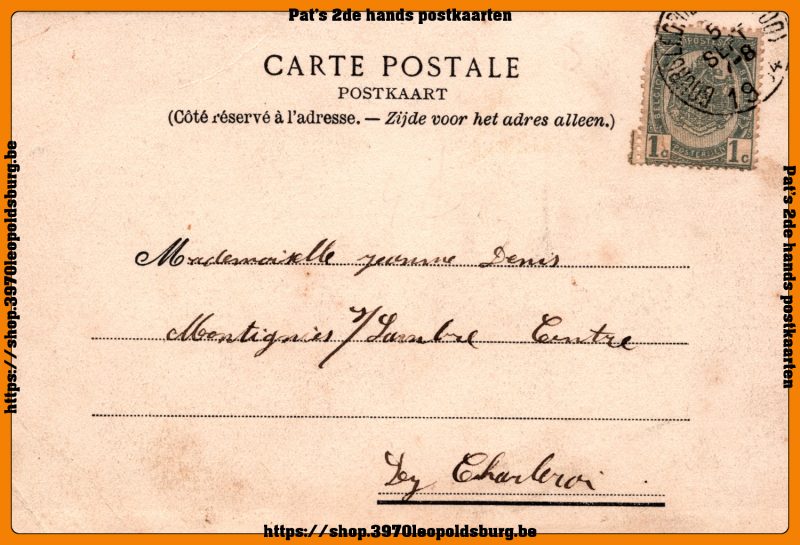 Pat's 2de hands postkaarten
CARTE POSTALE
POSTKAART
(Côté réservé à l'adresse. — Zijde voor het adres alleen.)
1c 1c
5
SEPT
7-8
19
Mademoiselle Jeanne Denis
Montignies s/Sambre Centre
Charleroi
https://shop.3970leopoldsburg.be
Pat's 2de hands postkaarten
https://shop.3970leopoldsburg.be